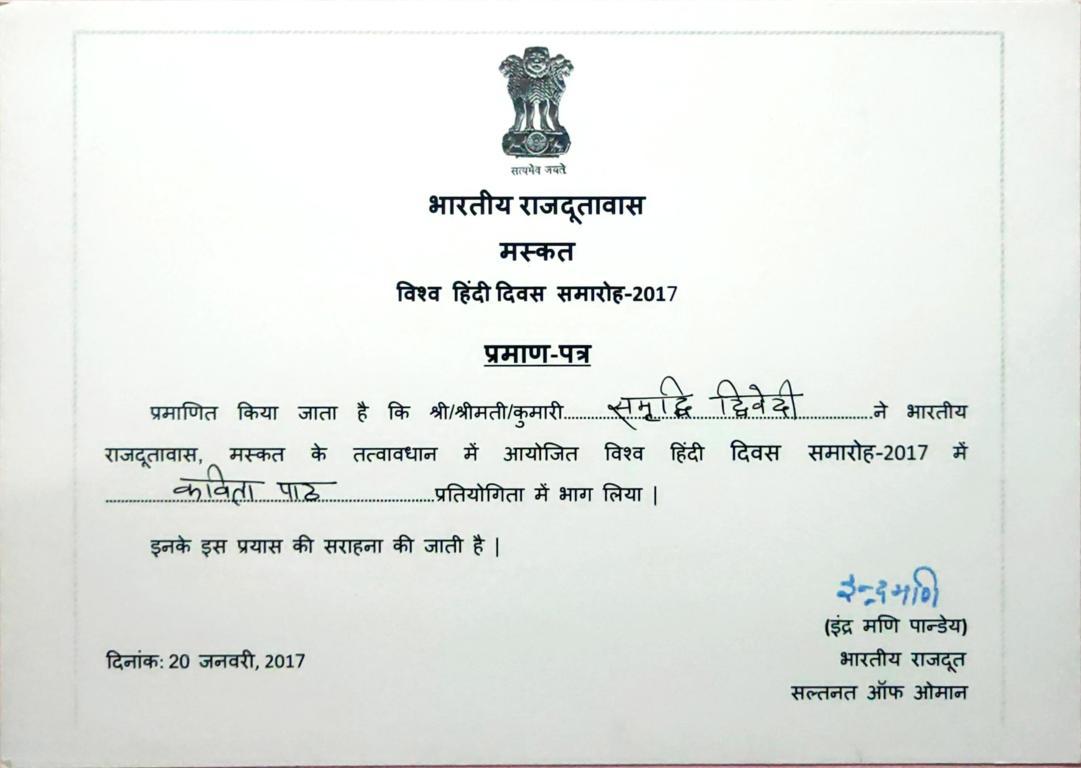 सत्यमेव जयते
भारतीय राजदूतावास
मस्कत
विश्व हिंदी दिवस समारोह-2017
प्रमाण-पत्र
प्रमाणित किया जाता है कि श्री/श्रीमती/कुमारी समृद्धि द्विवेदी ने भारतीय
राजदूतावास, मस्कत के तत्वावधान में आयोजित विश्व हिंदी दिवस समारोह-2017 में
कविता पाठ प्रतियोगिता में भाग लिया |
इनके इस प्रयास की सराहना की जाती है |
इन्द्रमणि
(इंद्र मणि पान्डेय)
दिनांक: 20 जनवरी, 2017
भारतीय राजदूत
सल्तनत ऑफ ओमान